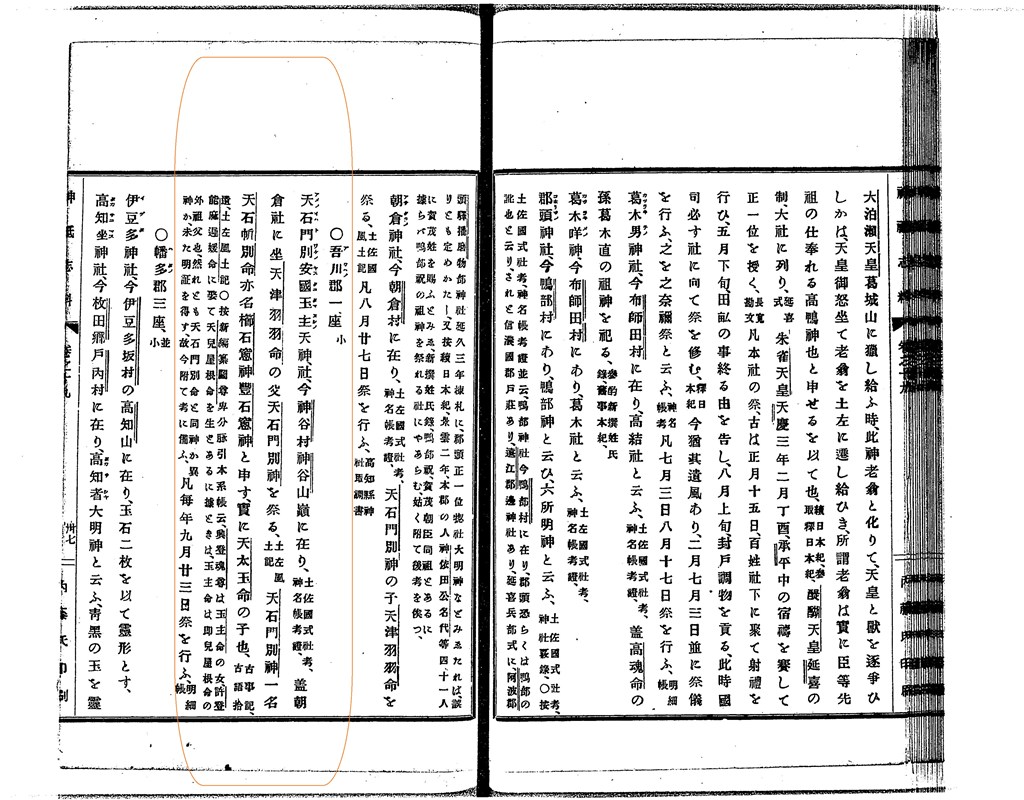 大泊瀬天皇葛城山に獵し給ふ時、此神老翁と化りて、天皇と獸を逐爭ひ
しかは、天皇御怒坐て老翁を土左に遷し給ひき、所謂老翁は實に臣等先
祖の仕奉れる高鴨神也と申せるを以て也、續日本紀、參取釋日本紀、醍醐天皇延喜の
制、大社に列り、延喜式 朱雀天皇天慶三年二月丁酉、承平中の宿禱を賽して
正一位を授く、長寛勘文 凡本社の祭、古は正月十五日、百姓社下に聚て射禮を
行ひ、五月下旬田畝の事終る由を告し、八月上旬、封戸調物を貢る、此時國
司必す社に向て祭を修む、釋日本紀 今猶其遺風あり、二月七月三日並に祭儀
を行ふ、之を之奈禰祭と云ふ、神名帳考 凡七月三日八月十七日祭を行ふ、明細帳
葛木男神社、今布師田村に在り、高結社と云ふ、土佐國式社考、神名帳考證、蓋高魂命の
孫葛木直の祖神を祀る、參酌新撰姓氏錄、舊事本紀、
葛木咩神、今布師田村にあり、葛木社と云ふ、土左國式社考、神名帳考證、
郡頭神社、今鴨部村にあり、鴨部神と云ひ、六所明神と云ふ、土佐國式社考、神社覈錄、○按
土佐國式社考、神名帳考證並云、鴨部神社今鴨部村に在り、郡頭恐らくは鴨部の
訛也と云り、されと信濃國郡戸莊あり、遠江郡邊神社あり、延喜兵部式に、阿波郡
頭驛播磨物部神社延久三年棟札に、郡頭正一位惣社大明神などみゑたれば、誤
りとも定めかたし、又按續日本紀、景雲二年本郡の人神依田公名代等四十一人
に賀茂姓を賜ふとみゑ新撰姓氏錄、鴨部祝賀茂朝臣同祖とあるに
據らバ鴨部祝の祖神を祭れる社にやあらむ姑く附て後考を俟つ、
朝倉神社、今朝倉村に在り、土左國式社考、神名帳考證、天石門別神の子天津羽羽命を
祭る、土佐國風土記 凡八月廿七日祭を行ふ、高知縣神社取調書
○吾川郡一座 小
天石門別安國玉主天神社、今神谷村神谷山巓に在り、土佐國式社考、神名帳考證、蓋朝
倉社に坐天津羽羽命の父天石門別神を祭る、土左風土記 天石門別神一名
天石帆別命亦名櫛石窻神豐石窻神と申す、實に天太玉命の子也、古事記、古語拾
遺、土左風土記○按新編纂圖尊卑分脉引本系帳云、興登魂尊は玉主命の女許登
能麻遲媛命に娶て天兒屋根命を生とあるに據ときは、玉主命は即兒屋根命の
外祖父也、然れとも天石門別命と同神か異神か未た明証を得す故今附て考に備ふ、凡每年九月廿三日祭を行ふ、明細帳
○幡多郡三座、並小
伊豆多神社、今伊豆多坂村の高知山に在り、玉石二枚を以て靈形とす、
高知坐神社、今枚田郷戸內村に在り、高知者大明神と云ふ、靑黑の玉を靈
卅七